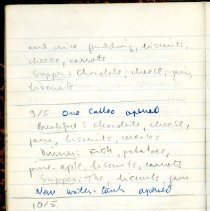 and rice pudding, biscuits,
cheese, carrots
Supper: Chocolate, cheese, jam,
biscuits
9/5 One Calleo opened
Breakfast: chocolate, cheese,
jam, biscuits,
Dinner: Fish, potatoes,
pine-apple, biscuits, carrots
Supper: The, biscuits jam
New water tank opened
10/5